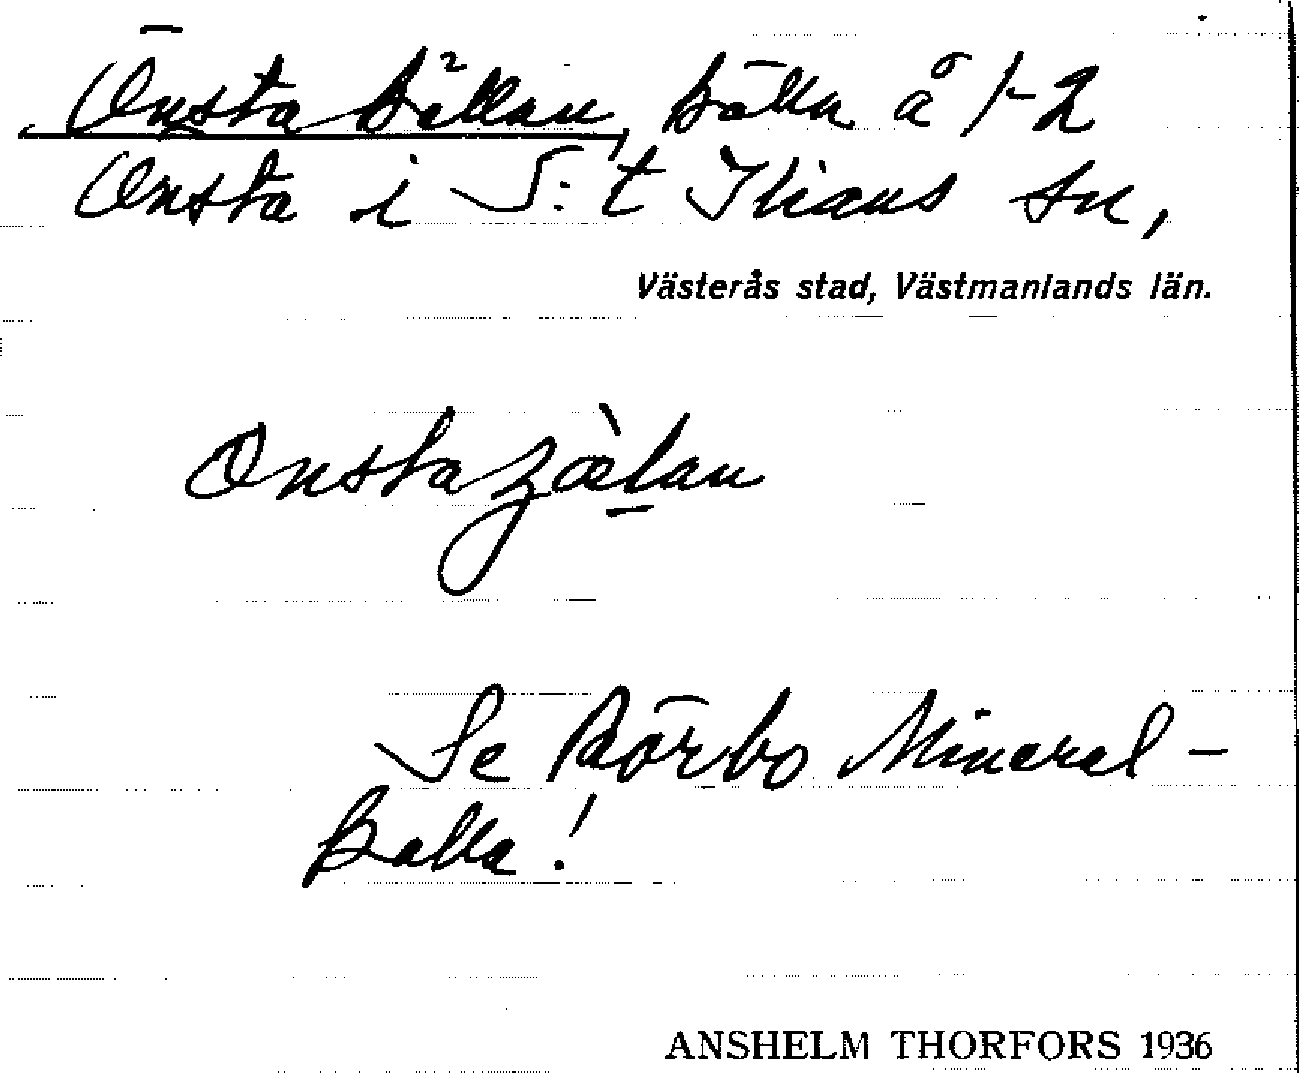 Önsta källan, källa å 1-2
Onsta i S:t Ilians sn,
Västerås stad, Västmanlands län.
Se Rörbo Mineral-
kalla!
ANSHELM THORFORS 1936